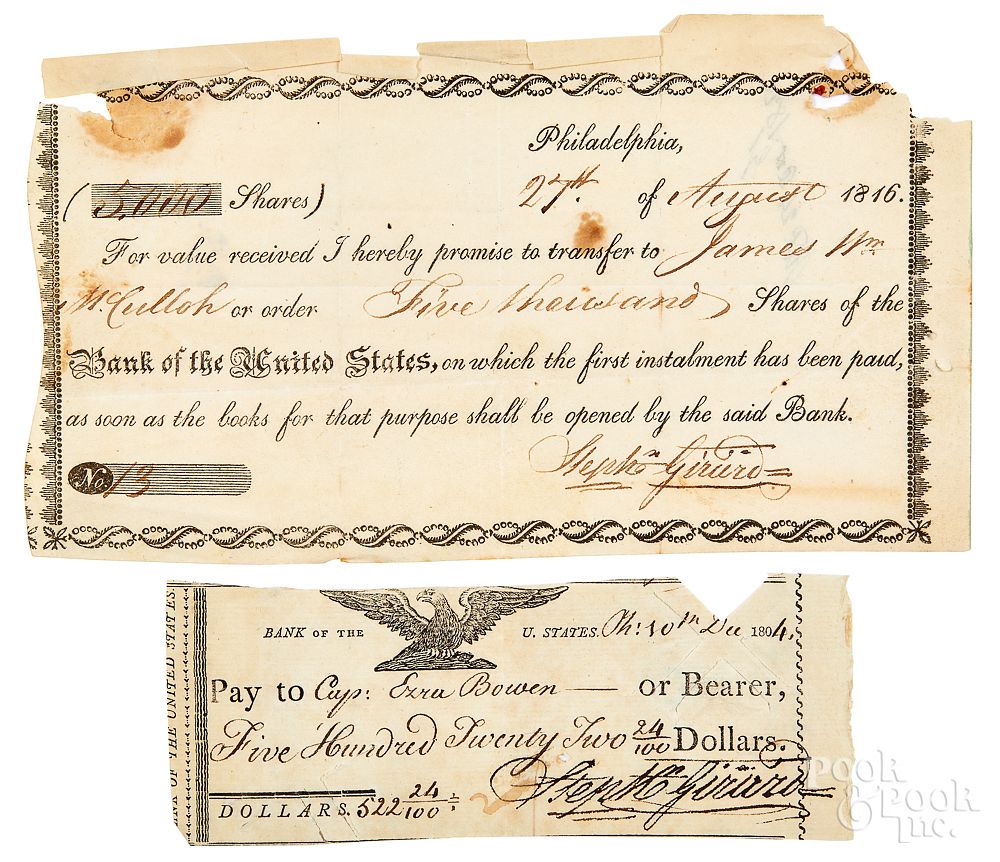 Philadelphia,
(5,000 Shares) 27th. of August 1816.
For value received I hereby promise to transfer to James Wm
McCulloh or order Five thousand Shares of the
Bank of the United States, on which the first instalment has been paid,
as soon as the books for that purpose shall be opened by the said Bank.
Stephn Girard
No. 13
BANK OF THE U. STATES. Ph: 10th Dec 1804,
Pay to Cap: Ezra Bowen — or Bearer,
Five Hundred Twenty Two 24/100 Dollars.
Stephn Girard
DOLLARS. 522 24/100
OF THE UNITED STATES.
POOK
& POOK
Inc.